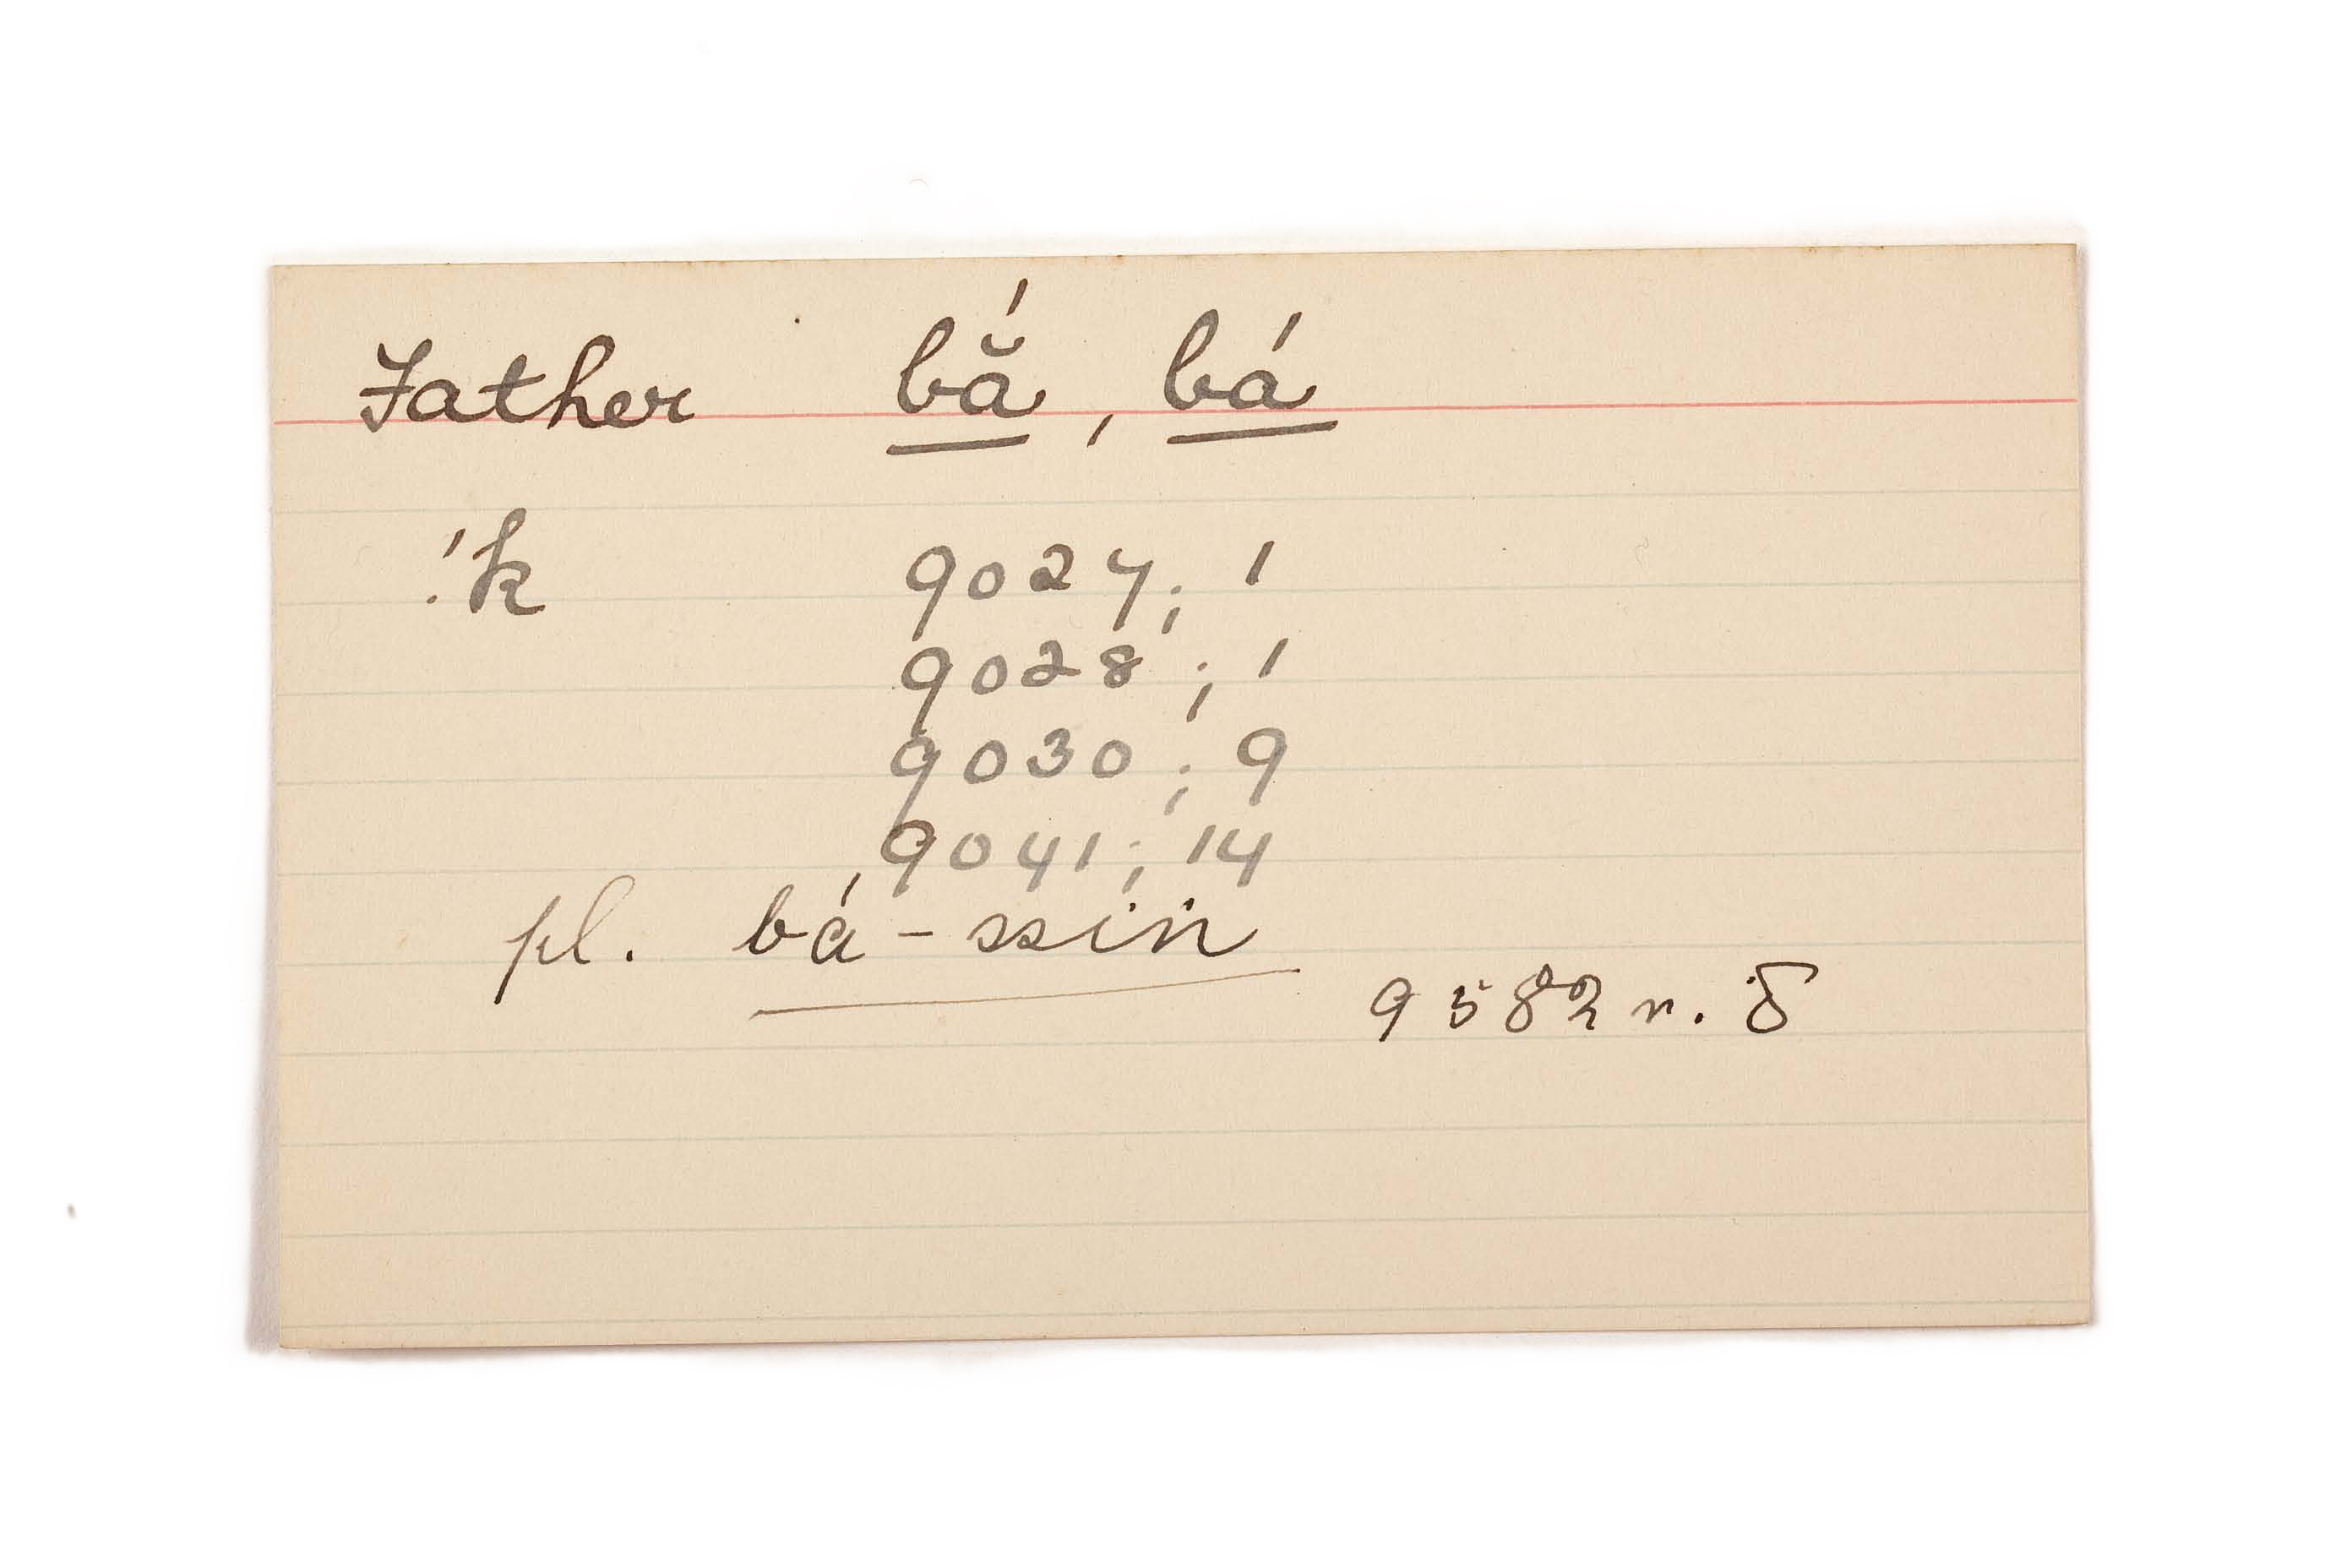 Father bắ, bá
!k 9027; 1
9028; 1
9030; 9
9041; 14
pl. bá-ssin
9582 r. δ